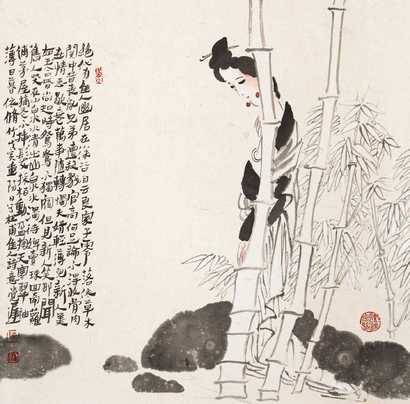 絕代有佳人幽居在空谷自云良家子零落依草木
關中昔喪亂兄弟遭殺戮官高何足論不得收骨肉
世情惡衰歇萬事隨轉燭夫婿輕薄兒新人美
如玉合昏尚知時鴛鴦不獨宿但見新人笑那聞
舊人哭在山泉水清出山泉水濁侍婢賣珠回牽蘿
補茅屋摘花不插髮采柏動盈掬天寒翠袖
薄日暮倚脩竹戊寅重陽日寫杜甫佳人詩意